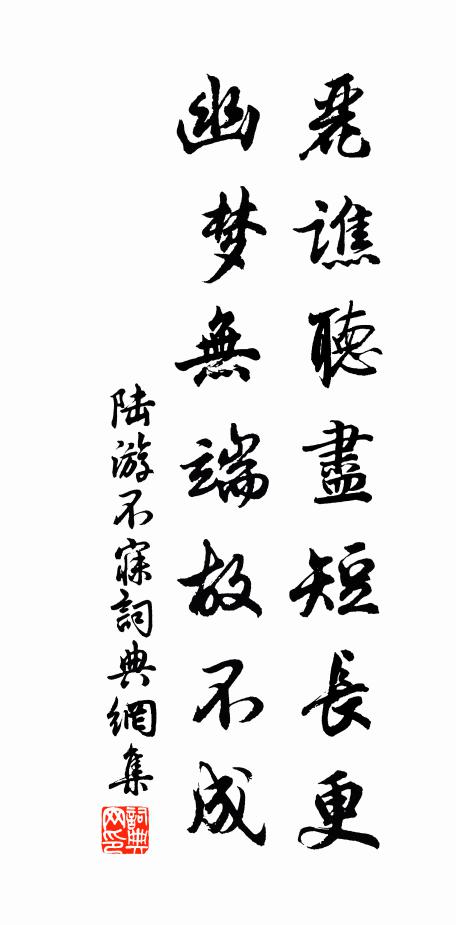 麗譙聽盡短長更
幽梦無端故不成
陆游不寐詞典網集
詞典网印